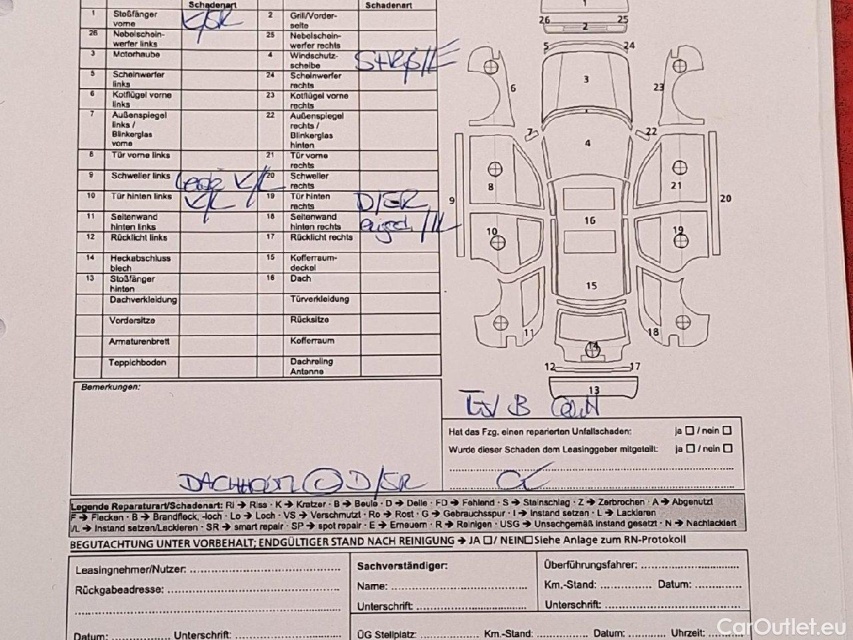 Schadenart Schadenart
1 Stoßfänger vorne K/SR 2 Grill/Vorder-seite
26 Nebelschein-werfer links 25 Nebelschein-werfer rechts
3 Motorhaube 4 Windschutz-scheibe
5 Scheinwerfer links 24 Scheinwerfer rechts
6 Kotflügel vorne links 23 Kotflügel vorne rechts
7 Außenspiegel links / Blinkerglas vorne 22 Außenspiegel rechts / Blinkerglas hinten
8 Tür vorne links 21 Tür vorne rechts
9 Schweller links K/L 20 Schweller rechts
10 Tür hinten links K/L 19 Tür hinten rechts D/SR
11 Seitenwand hinten links 18 Seitenwand hinten rechts
12 Rücklicht links 17 Rücklicht rechts
14 Heckabschluss blech 15 Kofferraum-deckel
13 Stoßfänger hinten 16 Dach
Dachverkleidung Türverkleidung
Vordersitze Rücksitze
Armaturenbrett Kofferraum
Teppichboden Dachreling Antenne
1
26 2 25
5 24
3
6 23
7 22
4
8 21
9 20
16
10 19
15
11 18
14
12 17
13
Bemerkungen:
D/SR
Hat das Fzg. einen reparierten Unfallschaden: ja / nein
Wurde dieser Schaden dem Leasinggeber mitgeteilt: ja / nein
Legende Reparaturart/Schadenart: RI → Riss · K → Kratzer · B → Beule · D → Delle · FD → Fehlend · S → Steinschlag · Z → Zerbrochen · A → Abgenutzt
F → Flecken · B → Brandfleck, -loch · Lo → Loch · VS → Verschmutzt · Ro → Rost · G → Gebrauchsspur · I → Instand setzen · L → Lackieren
/L → Instand setzen/Lackieren · SR → smart repair · SP → spot repair · E → Erneuern · R → Reinigen · USG → Unsachgemäß instand gesetzt · N → Nachlackiert
BEGUTACHTUNG UNTER VORBEHALT; ENDGÜLTIGER STAND NACH REINIGUNG → JA / NEIN Siehe Anlage zum RN-Protokoll
Leasingnehmer/Nutzer: Sachverständiger: Überführungsfahrer:
Rückgabeadresse: Name: Km.-Stand: Datum:
Unterschrift: Unterschrift:
Datum: Unterschrift: ÜG Stellplatz: Km.-Stand: Datum: Uhrzeit:
CarOutlet.eu